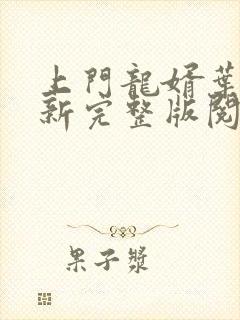 上門龍婿葉
新完整版閱
果子漿